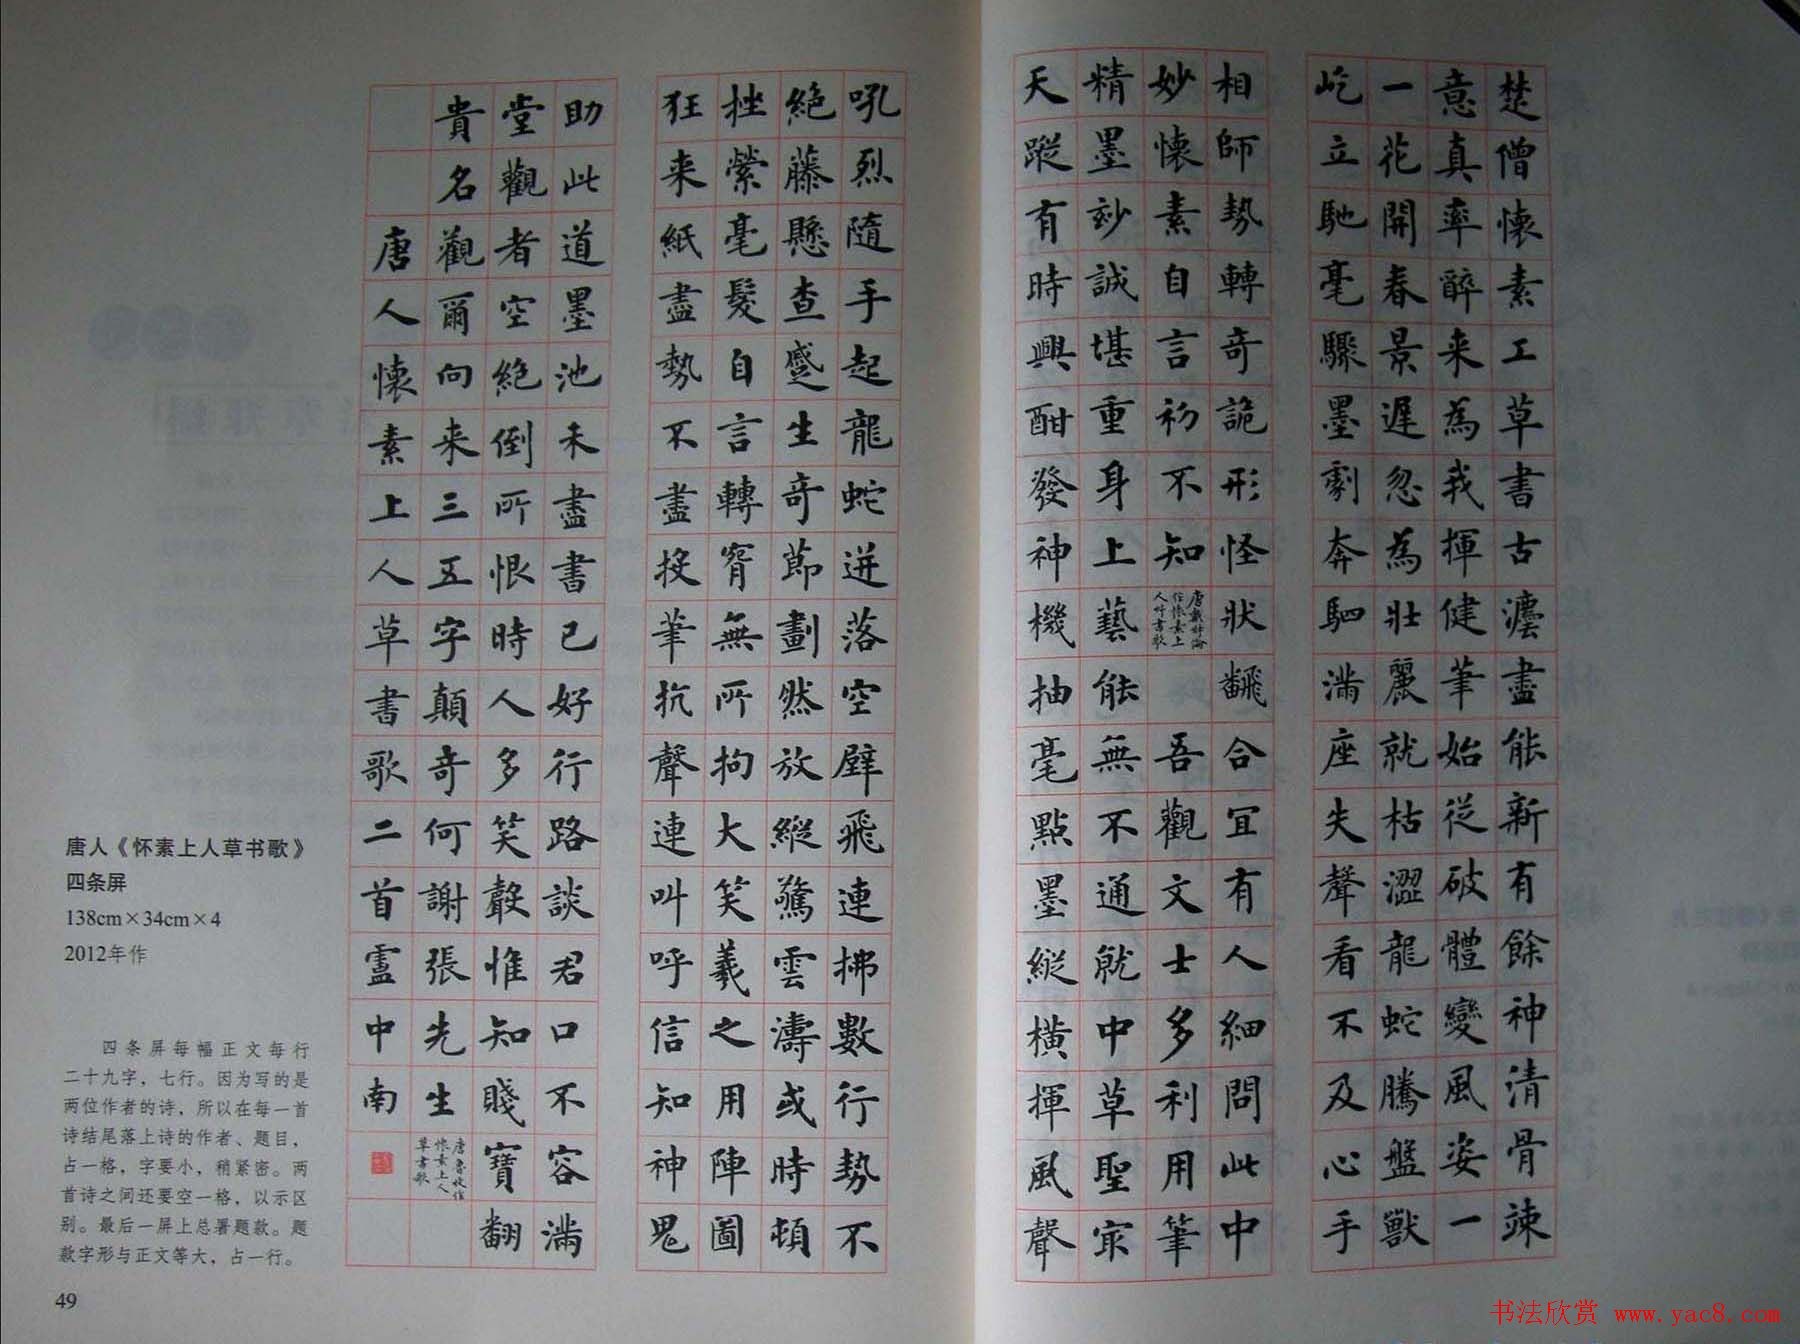 楚僧懷素工草書古灋盡能新有餘神清骨竦
意真率醉来為我揮健筆始從破體變風姿一
一花開春景遲忽為壯麗就枯澀龍蛇騰盤獸
屹立馳毫驟墨劇奔駟滿座失聲看不及心手
相師勢轉奇詭形怪狀飜合宜有人細問此中
妙懷素自言初不知
唐戴叔倫
作懷素上
人草書歌
吾觀文士多利用筆
精墨妙誠堪重身上藝能無不通就中草聖冣
天蹤有時興酣發神機抽毫點墨縱橫揮風聲
吼烈隨手起龍蛇迸落空壁飛連拂數行勢不
絕藤懸查蹙生奇節劃然放縱驚雲濤或時頓
挫縈毫髮自言轉腕無所拘大笑羲之用陣圖
狂来紙盡勢不盡投筆抗聲連叫呼信知神鬼
助此道墨池未盡書已好行路談君口不容滿
堂觀者空絕倒所恨時人多笑聲惟知賤寶翻
貴名觀爾向来三五字顛奇何謝張先生
唐魯收作
懷素上人
草書歌
唐人懷素上人草書歌二首盧中南
唐人《怀素上人草书歌》
四条屏
138cm×34cm×4
2012年作
四条屏每幅正文每行
二十九字，七行。因为写的是
两位作者的诗，所以在每一首
诗结尾落上诗的作者、题目，
占一格，字要小，稍紧密。两
首诗之间还要空一格，以示区
别。最后一屏上总署题款。题
款字形与正文等大，占一行。
49
书法欣赏 www.yac8.com